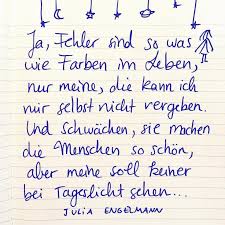 Ja, Fehler sind so was
wie Farben im Leben,
nur meine, die kann ich
mir selbst nicht vergeben.
Und Schwächen, sie machen
die Menschen so schön,
aber meine soll keiner
bei Tageslicht sehen...
JULIA ENGELMANN